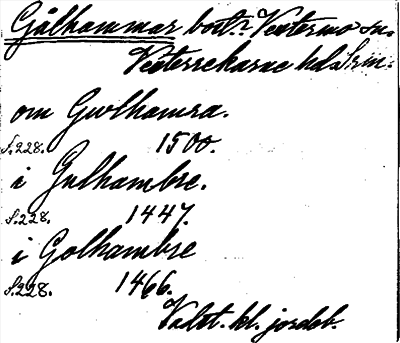 Gålhammar bortl.? Vextermo sn.
Vesterrekarne hd. Srm.
om Gwlhamra.
S.228. 1500.
i Gulhambre.
S.228. 1447.
i Golhambre
S.228. 1466.
Vadst. kl. jordeb.